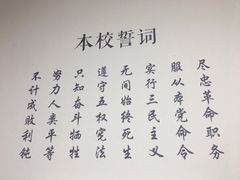 本校誓词
尽忠革命职务
服从本党命令
实行三民主义
无间始终死生
遵守五权宪法
只知奋斗牺牲
努力人类平等
不计成败利钝